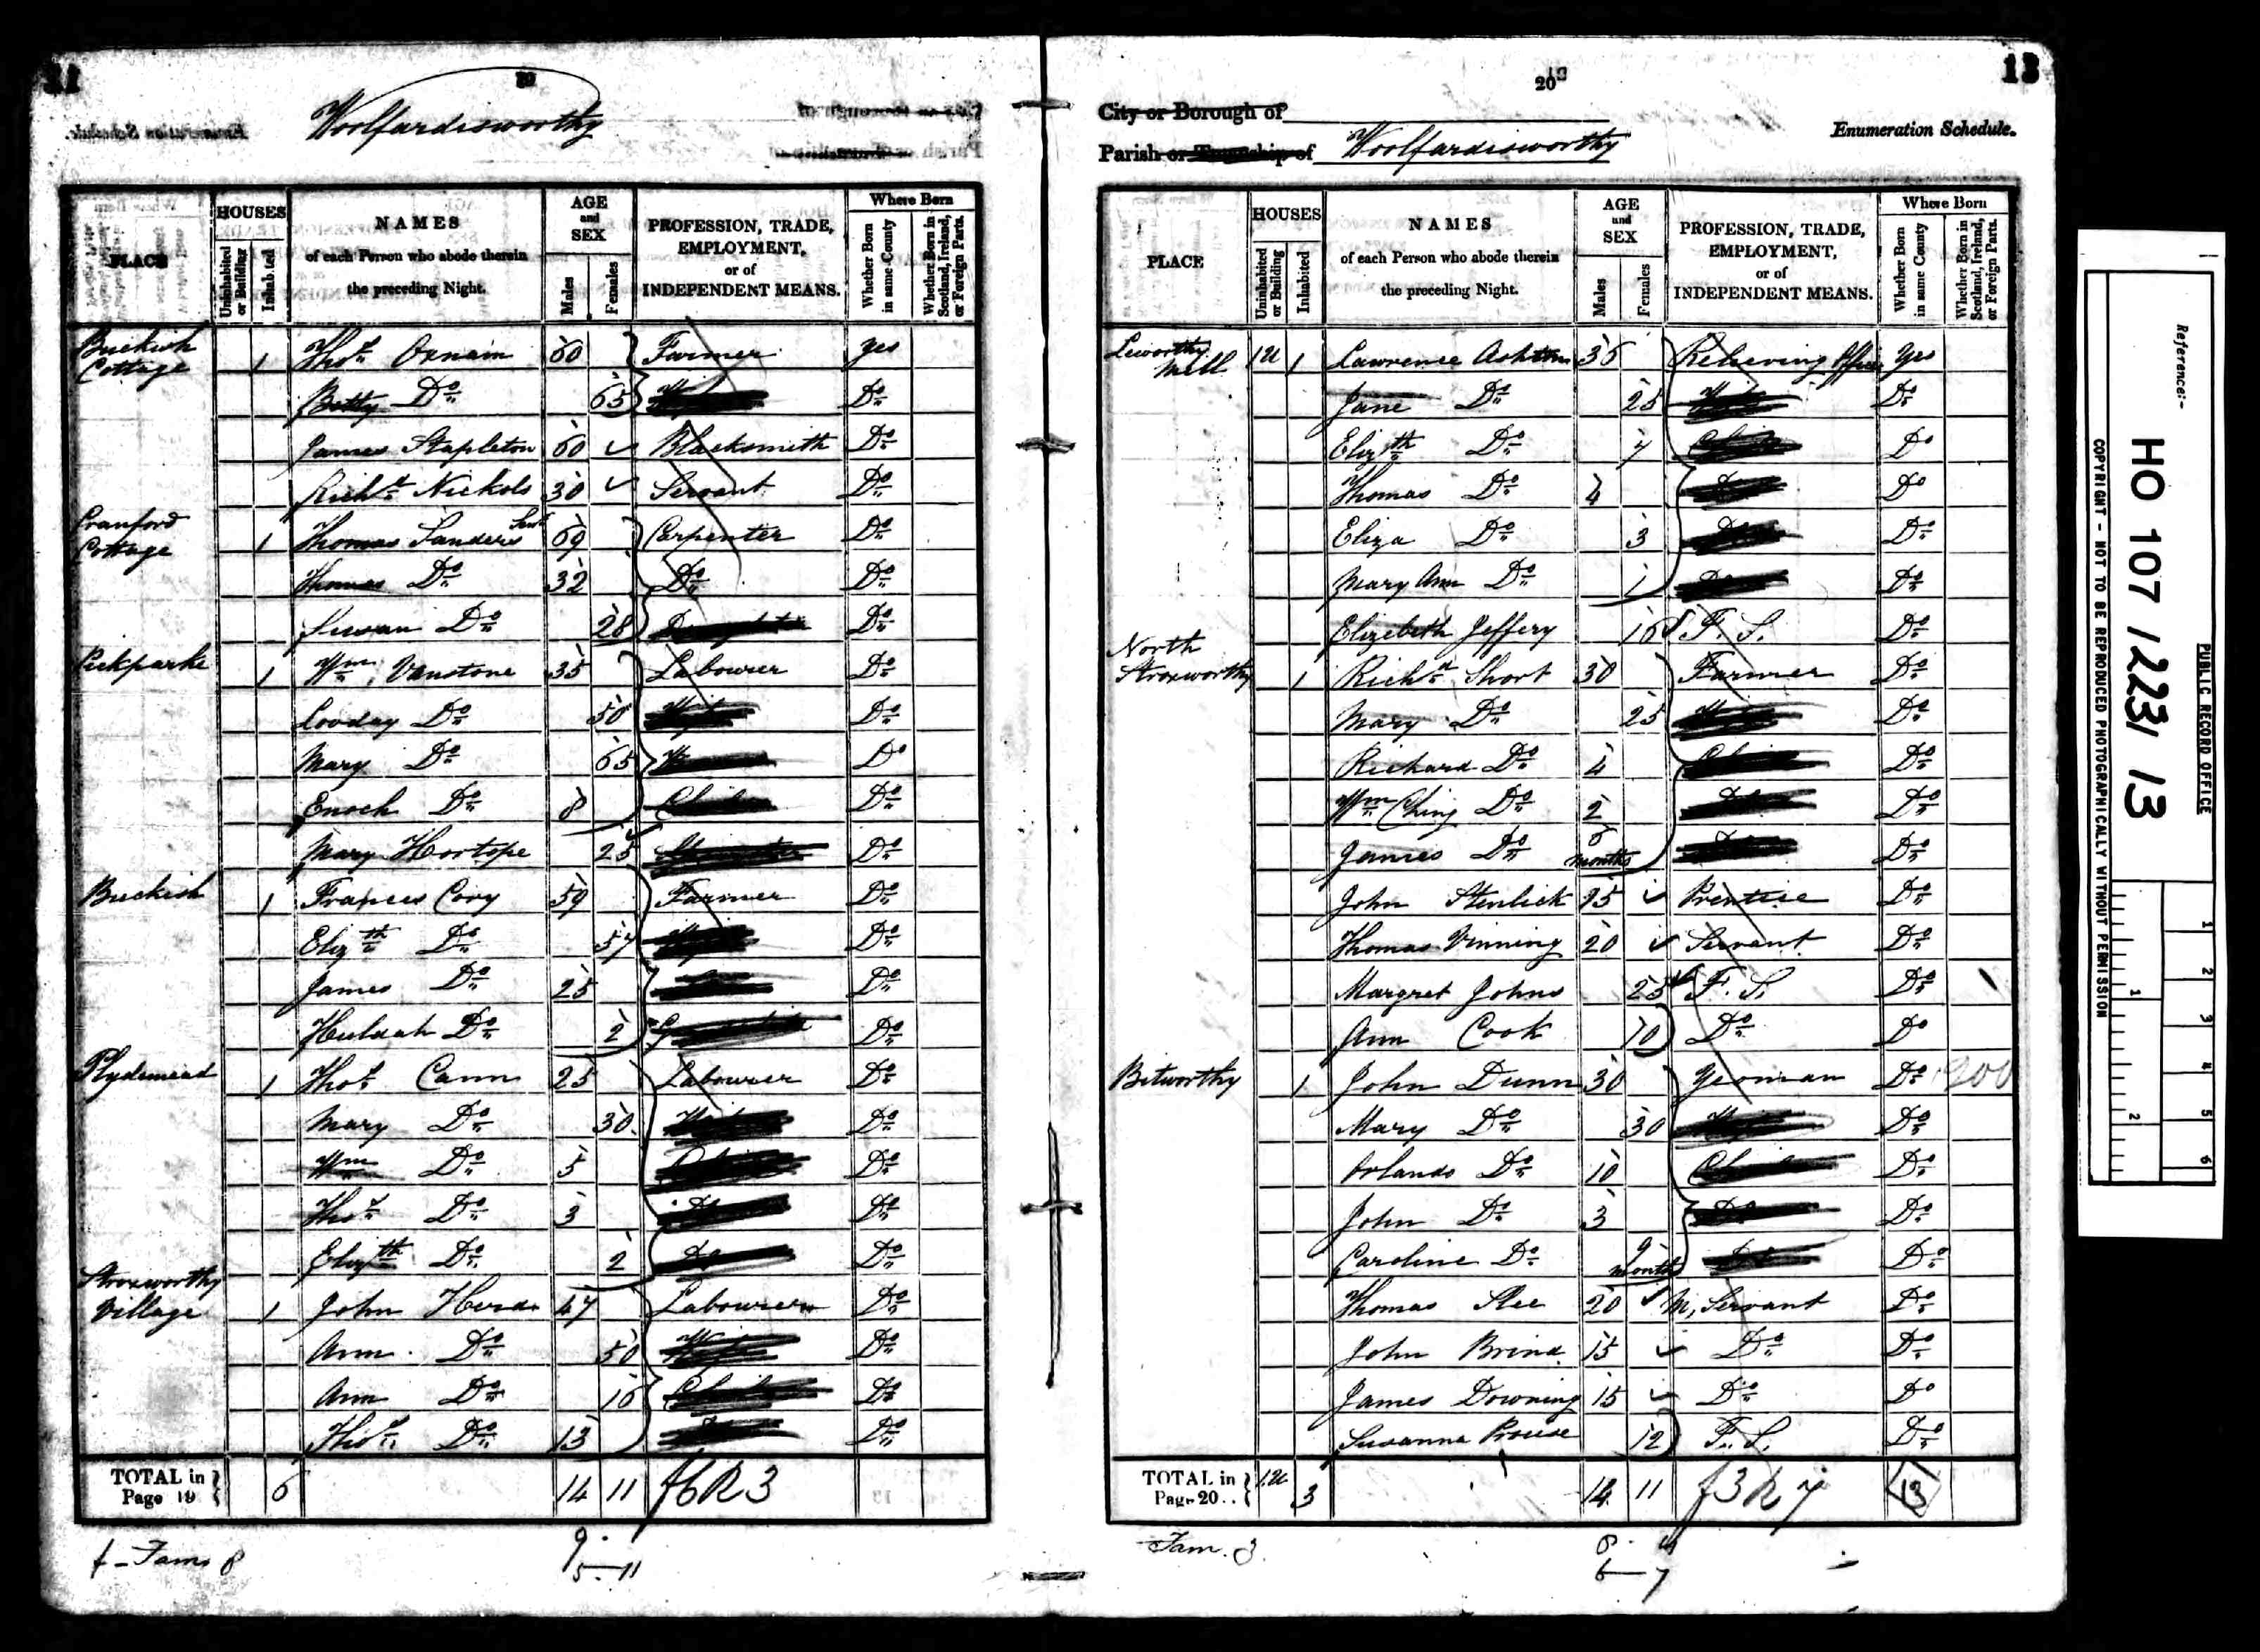 Woolfardisworthy
PLACE
HOUSES
Uninhabited or Building
Inhabited
NAMES
of each Person who abode therein
the preceding Night.
AGE
and
SEX
Males
Females
PROFESSION, TRADE,
EMPLOYMENT,
or of
INDEPENDENT MEANS.
Where Born
Whether Born in same County
Whether Born in Scotland, Ireland, or Foreign Parts.
Buckish Cottage 1 Thos. Oxnam 60 Farmer yes
Betty Do 65 Do
James Stapleton 60 Blacksmith Do
Richd Nichols 30 Servant Do
Cranford Cottage 1 Thomas Sanders Senr 69 Carpenter Do
Thomas Do 32 Do Do
Susan Do 28 Do
Pickparke 1 Wm Vanstone 35 Labourer Do
Looday Do 50 Do
Mary Do 65 Do
Enoch Do 8 Child Do
Mary Hortope 25 Do
Buckish 1 Frances Cory 59 Farmer Do
Elizth Do 57 Do
James Do 25 Do
Huldah Do 2 Do
Plydemead 1 Thos Cann 25 Labourer Do
Mary Do 30 Do
Wm Do 5 Do
Thos Do 3 Do
Elizth Do 2 Do Do
Stroxworthy Village 1 John Herd 47 Labourer Do
Ann Do 50 Wife Do
Ann Do 16 Do
Thos Do 13 Do
TOTAL in Page 19 6 14 11 f6R3
f - Fams 8
9
5 - 11
20
13
City or Borough of
Enumeration Schedule.
Parish or Township of Woolfardisworthy
PLACE
HOUSES
Uninhabited or Building
Inhabited
NAMES
of each Person who abode therein
the preceding Night.
AGE
and
SEX
Males
Females
PROFESSION, TRADE,
EMPLOYMENT,
or of
INDEPENDENT MEANS.
Where Born
Whether Born in same County
Whether Born in Scotland, Ireland, or Foreign Parts.
Leworthy Mill 1U 1 Lawrence Ashton 35 Relieving Officer Yes
Jane Do 25 Do
Elizth Do 7 Do
Thomas Do 4 Do
Eliza Do 3 Do
Mary Ann Do 1 Do
Elizebeth Jeffery 16 F. S. Do
North Stroxworthy 1 Richd Short 30 Farmer Do
Mary Do 25 Do
Richard Do 4 Do
Wm Ching Do 2 Do
James Do 6 months Do
John Stenlick 15 Prentice Do
Thomas Vinning 20 Servant Do
Margret Johns 25 F. S. Do
Ann Cook 10 Do Do
Bitworthy 1 John Dunn 30 Yeoman Do
Mary Do 30 Do
Orlando Do 10 Child Do
John Do 3 Do Do
Caroline Do 9 months Do Do
Thomas Slee 20 M, Servant Do
John Brind 15 Do Do
James Downing 15 Do Do
Susanna Prouse 12 F. S. Do
TOTAL in Page 20 1U 3 14 11 f3R7 13
Fam. 3
8 4
6 - 7
Reference:-
HO 107 / 223 / 13
PUBLIC RECORD OFFICE
COPYRIGHT - NOT TO BE REPRODUCED PHOTOGRAPHICALLY WITHOUT PERMISSION
1 2 3 4 5 6
1 2